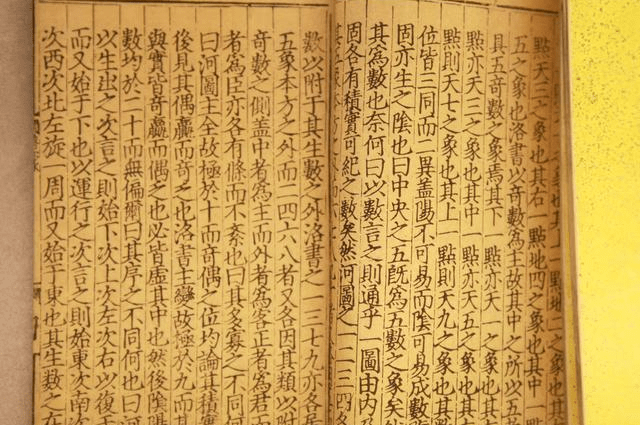 點天三之象也其右一點地四之象也其中一點
五之象也洛書以奇數爲主故其中之所以五
具五奇數之象焉其下一點亦天一之象也其左
點亦天三之象也其中一點亦天五之象也其
點則天七之象也其上一點則天九之象也其
位皆三同而二異蓋陽不可易而陰可易成數
固亦生之陰也曰中央之五旣爲五數之象矣然
其爲數也奈何曰以數言之則通乎一圖由內及
固各有積實可紀之數矣然河圖之一二三四各
數以附于其生數之外洛書之一三七九亦各居
五象本方之外而二四六八者又各因其類以附
奇數之側蓋中者爲主而外者爲客正者爲君而
者爲臣亦各有條而不紊也曰其多寡之不同何
曰河圖主全故極於十而奇偶之位均論其積實
後見其偶贏而奇乏也洛書主變故極於九而其
與實皆奇贏而偶乏也必皆虛其中也然後陰陽
數均於二十而無偏爾曰其序之不同何也曰河
以生出之次言之則始下次上次左次右以復于
而又始于下也以運行之次言之則始東次南次
次西次北左旋一周而又始于東也其生數之在